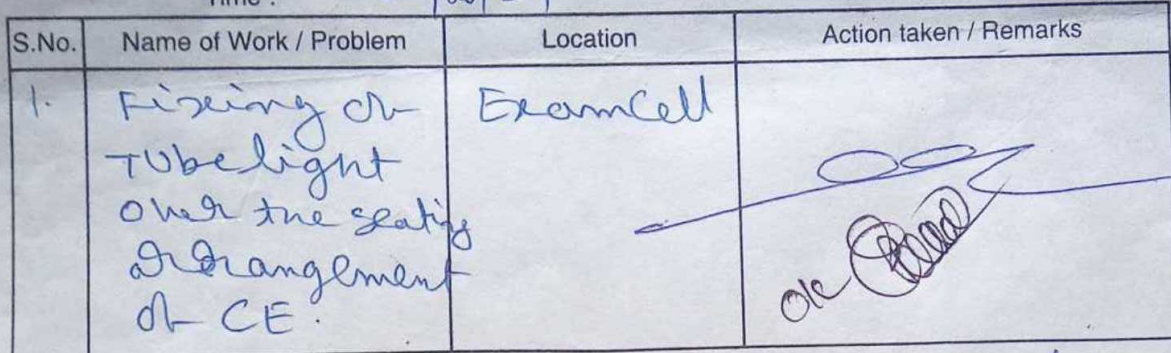 Time :
S.No. Name of Work / Problem Location Action taken / Remarks
1. Fixing of ExamCell
Tubelight
over the seating
arrangement
of CE.
ok